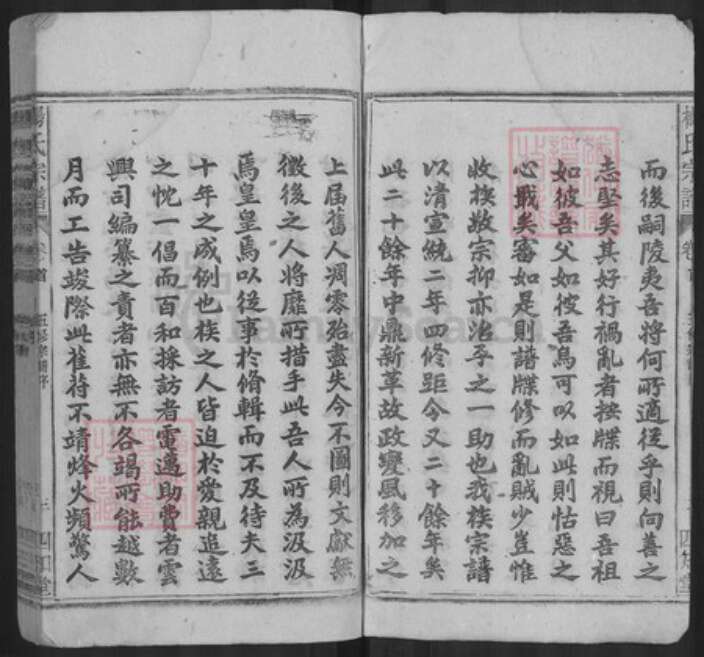 而後嗣陵夷吾將何所適從乎則向善之
志堅矣其好行禍亂者按牒而視曰吾祖
如彼吾父如彼吾烏可以如此則怙惡之
心戢矣審如是則譜牒修而亂賊少豈惟
收族敬宗抑亦治平之一助也我族宗譜
以清宣統二年四修距今又二十餘年矣
此二十餘年中鼎新革故政變風移加之
上屆舊人凋零殆盡失今不圖則文獻無
徵後之人將靡所措手此吾人所為汲汲
焉皇皇焉以從事於脩輯而不及待夫三
十年之成例也族之人皆迫於愛親追遠
之忱一倡而百和採訪者電邁助費者雲
興司編纂之責者亦無不各竭所能越數
月而工告竣際此萑苻不靖烽火頻驚人
楊氏宗譜
卷首
五修宗譜序
四知堂
FamilySearch